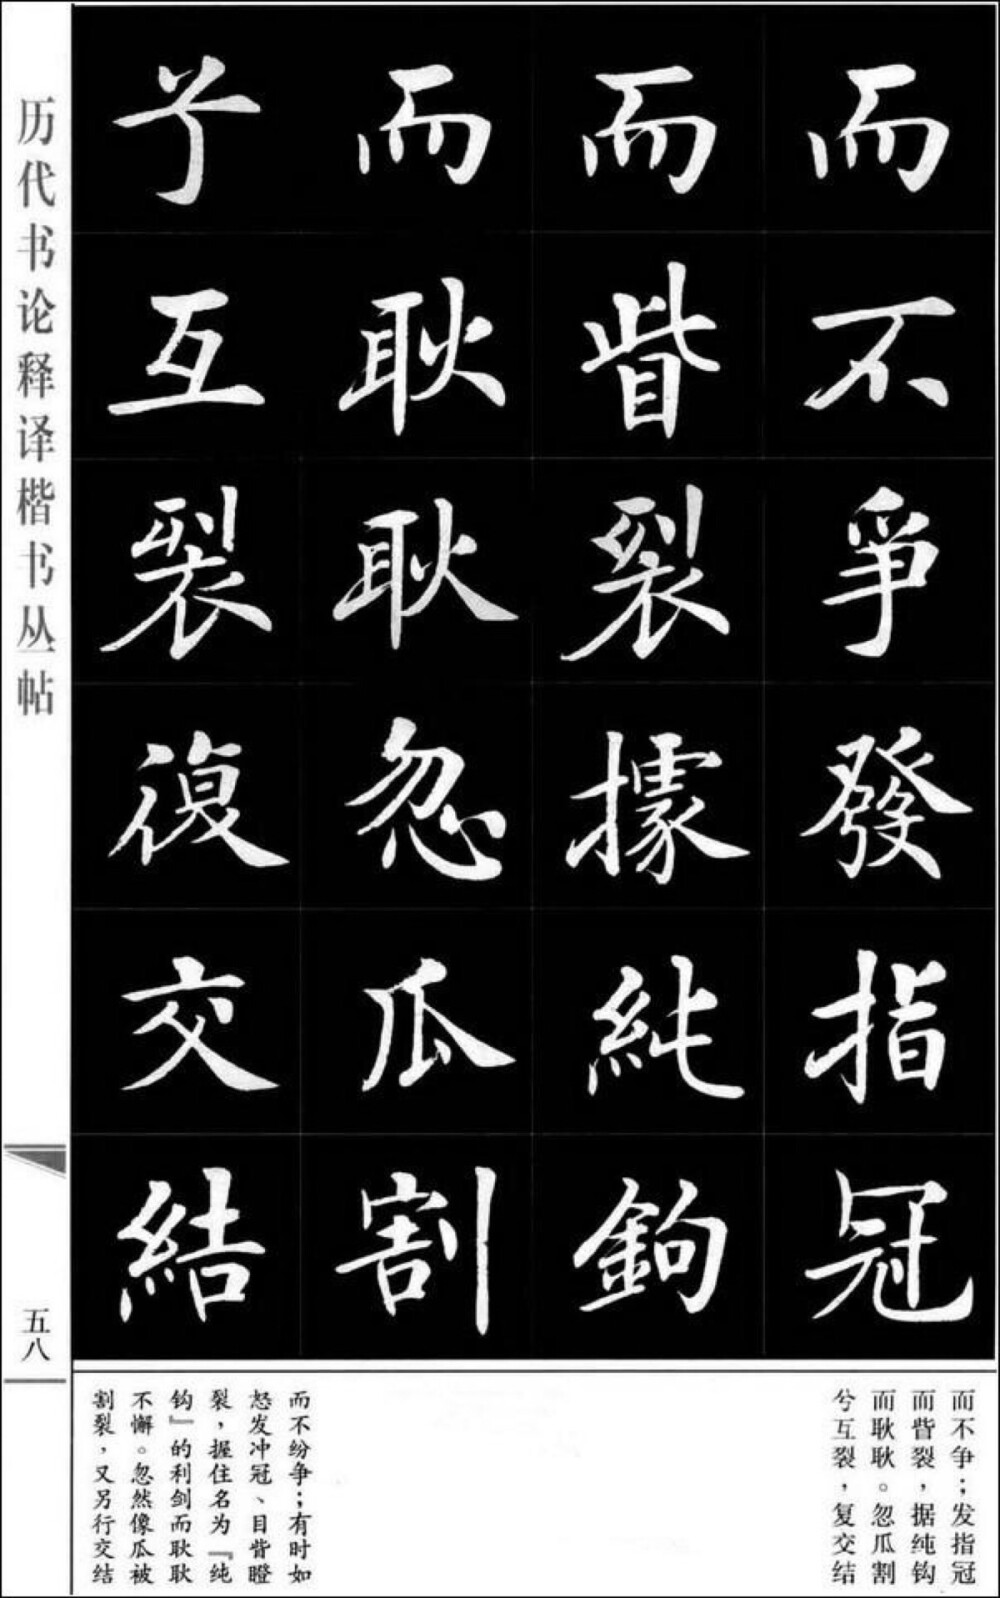 而不爭發指冠
而眥裂據純鉤
而耿耿忽瓜割
兮互裂復交結
而不争；发指冠
而眥裂，据纯钩
而耿耿。忽瓜割
兮互裂，复交结
而不纷争；有时如
怒发冲冠、目眥瞪
裂，握住名为『纯
钩』的利剑而耿耿
不懈。忽然像瓜被
割裂，又另行交结
历代书论释译楷书丛帖
五八